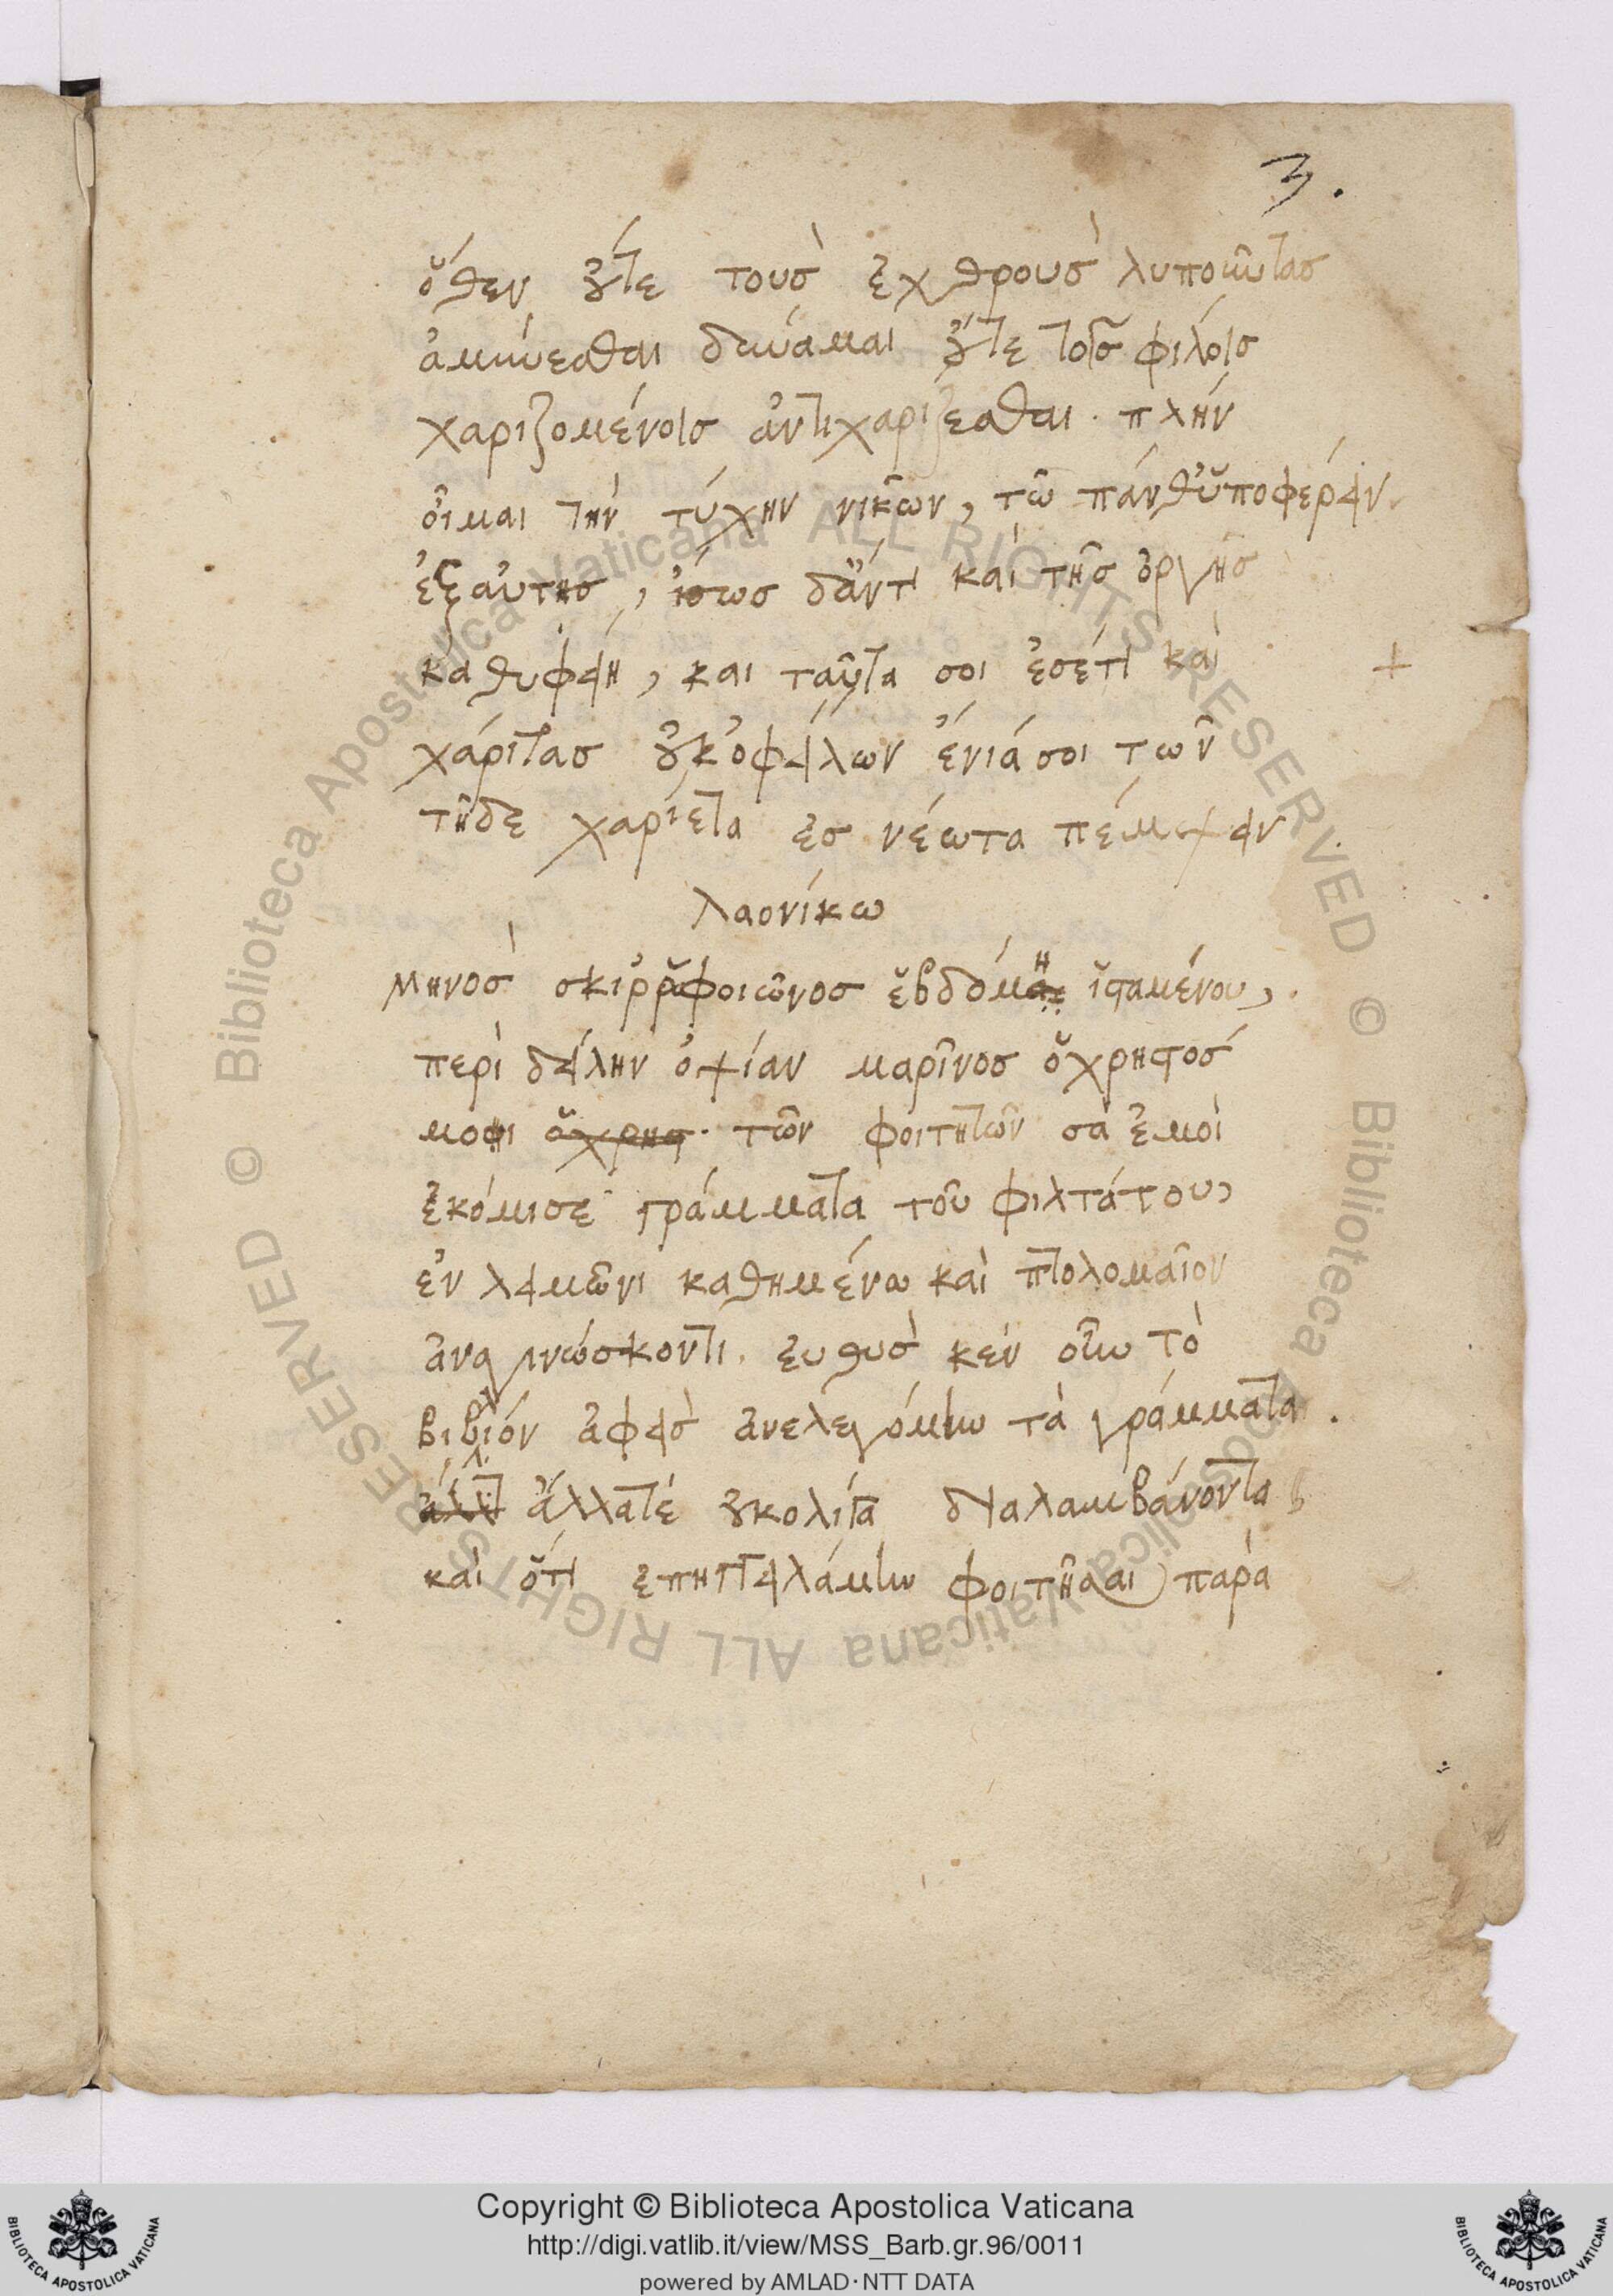 3.
ὅθεν οὔτε τοὺσ ἐχθροὺσ λυποῦντασ
ἀμύνεσθαι δύναμαι οὔτε τοῖσ φίλοισ
χαριζομένοισ ἀντιχαρίζεσθαι. πλήν
οἶμαι τὴν τύχην νικῶν, τῶ πάνθ' ὑποφέρειν.
ἐξαυτησ, ἴσωσ δἄντι καὶ τῆσ ὀργῆσ
καθυφείη, και ταῦτα σοι ἐσέτι καὶ
χάριτασ οὐκ ὀφείλων ἔνιά σοι τῶν
τῆδε χαρίεντα ἐσ νέωτα πέμψειν
λαονίκω
μηνὸσ σκιρροφοιῶνοσ ἑβδόμη ἱσταμένου,
περὶ δείλην ὀψίαν μαρῖνοσ ὁ χρηστόσ
μοι ὁ χρησ. τῶν φοιτητῶν σὰ ἐμοὶ
ἐκόμισε γράμματα τοῦ φιλτάτου,
ἐν λειμῶνι καθημένω καὶ πτολομαῖον
ἀναγινώσκοντι. ευθυσ κἐν οἵω τὸ
βιβλιόν ἀφεὶσ ἀνελεγόμην τὰ γράμματα.
ἀλλ ἄλλατέ οὐκολίγα διαλαμβάνοντα
καὶ ὅτι ἐπηγγειλάμην φοιτῆσαι παρὰ
Biblioteca Apostolica Vaticana ALL RIGHTS RESERVED ©
Biblioteca Apostolica Vaticana ALL RIGHTS RESERVED ©
Copyright © Biblioteca Apostolica Vaticana
http://digi.vatlib.it/view/MSS_Barb.gr.96/0011
powered by AMLAD·NTT DATA
BIBLIOTECA APOSTOLICA VATICANA
BIBLIOTECA APOSTOLICA VATICANA